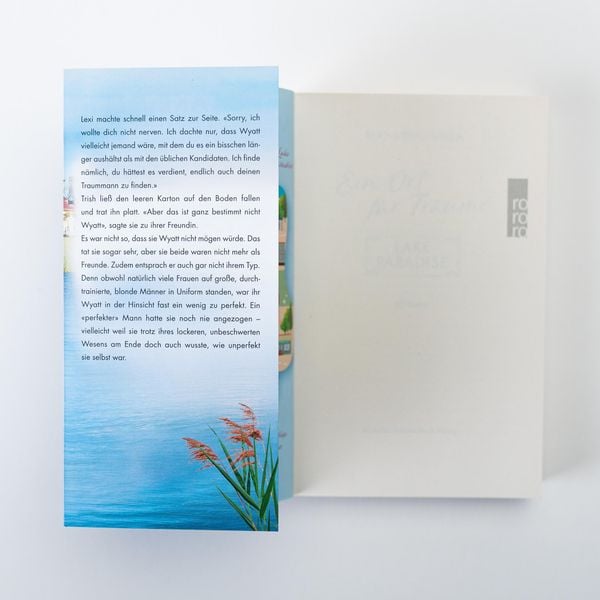 Lexi machte schnell einen Satz zur Seite. «Sorry, ich
wollte dich nicht nerven. Ich dachte nur, dass Wyatt
vielleicht jemand wäre, mit dem du es ein bisschen län-
ger aushältst als mit den üblichen Kandidaten. Ich finde
nämlich, du hättest es verdient, endlich auch deinen
Traummann zu finden.»
Trish ließ den leeren Karton auf den Boden fallen
und trat ihn platt. «Aber das ist ganz bestimmt nicht
Wyatt», sagte sie zu ihrer Freundin.
Es war nicht so, dass sie Wyatt nicht mögen würde. Das
tat sie sogar sehr, aber sie beide waren nicht mehr als
Freunde. Zudem entsprach er auch gar nicht ihrem Typ.
Denn obwohl natürlich viele Frauen auf große, durch-
trainierte, blonde Männer in Uniform standen, war ihr
Wyatt in der Hinsicht fast ein wenig zu perfekt. Ein
«perfekter» Mann hatte sie noch nie angezogen –
vielleicht weil sie trotz ihres lockeren, unbeschwerten
Wesens am Ende doch auch wusste, wie unperfekt
sie selbst war.
Ein Ort
für Träume
LAKE
PARADISE
ro
ro
ro